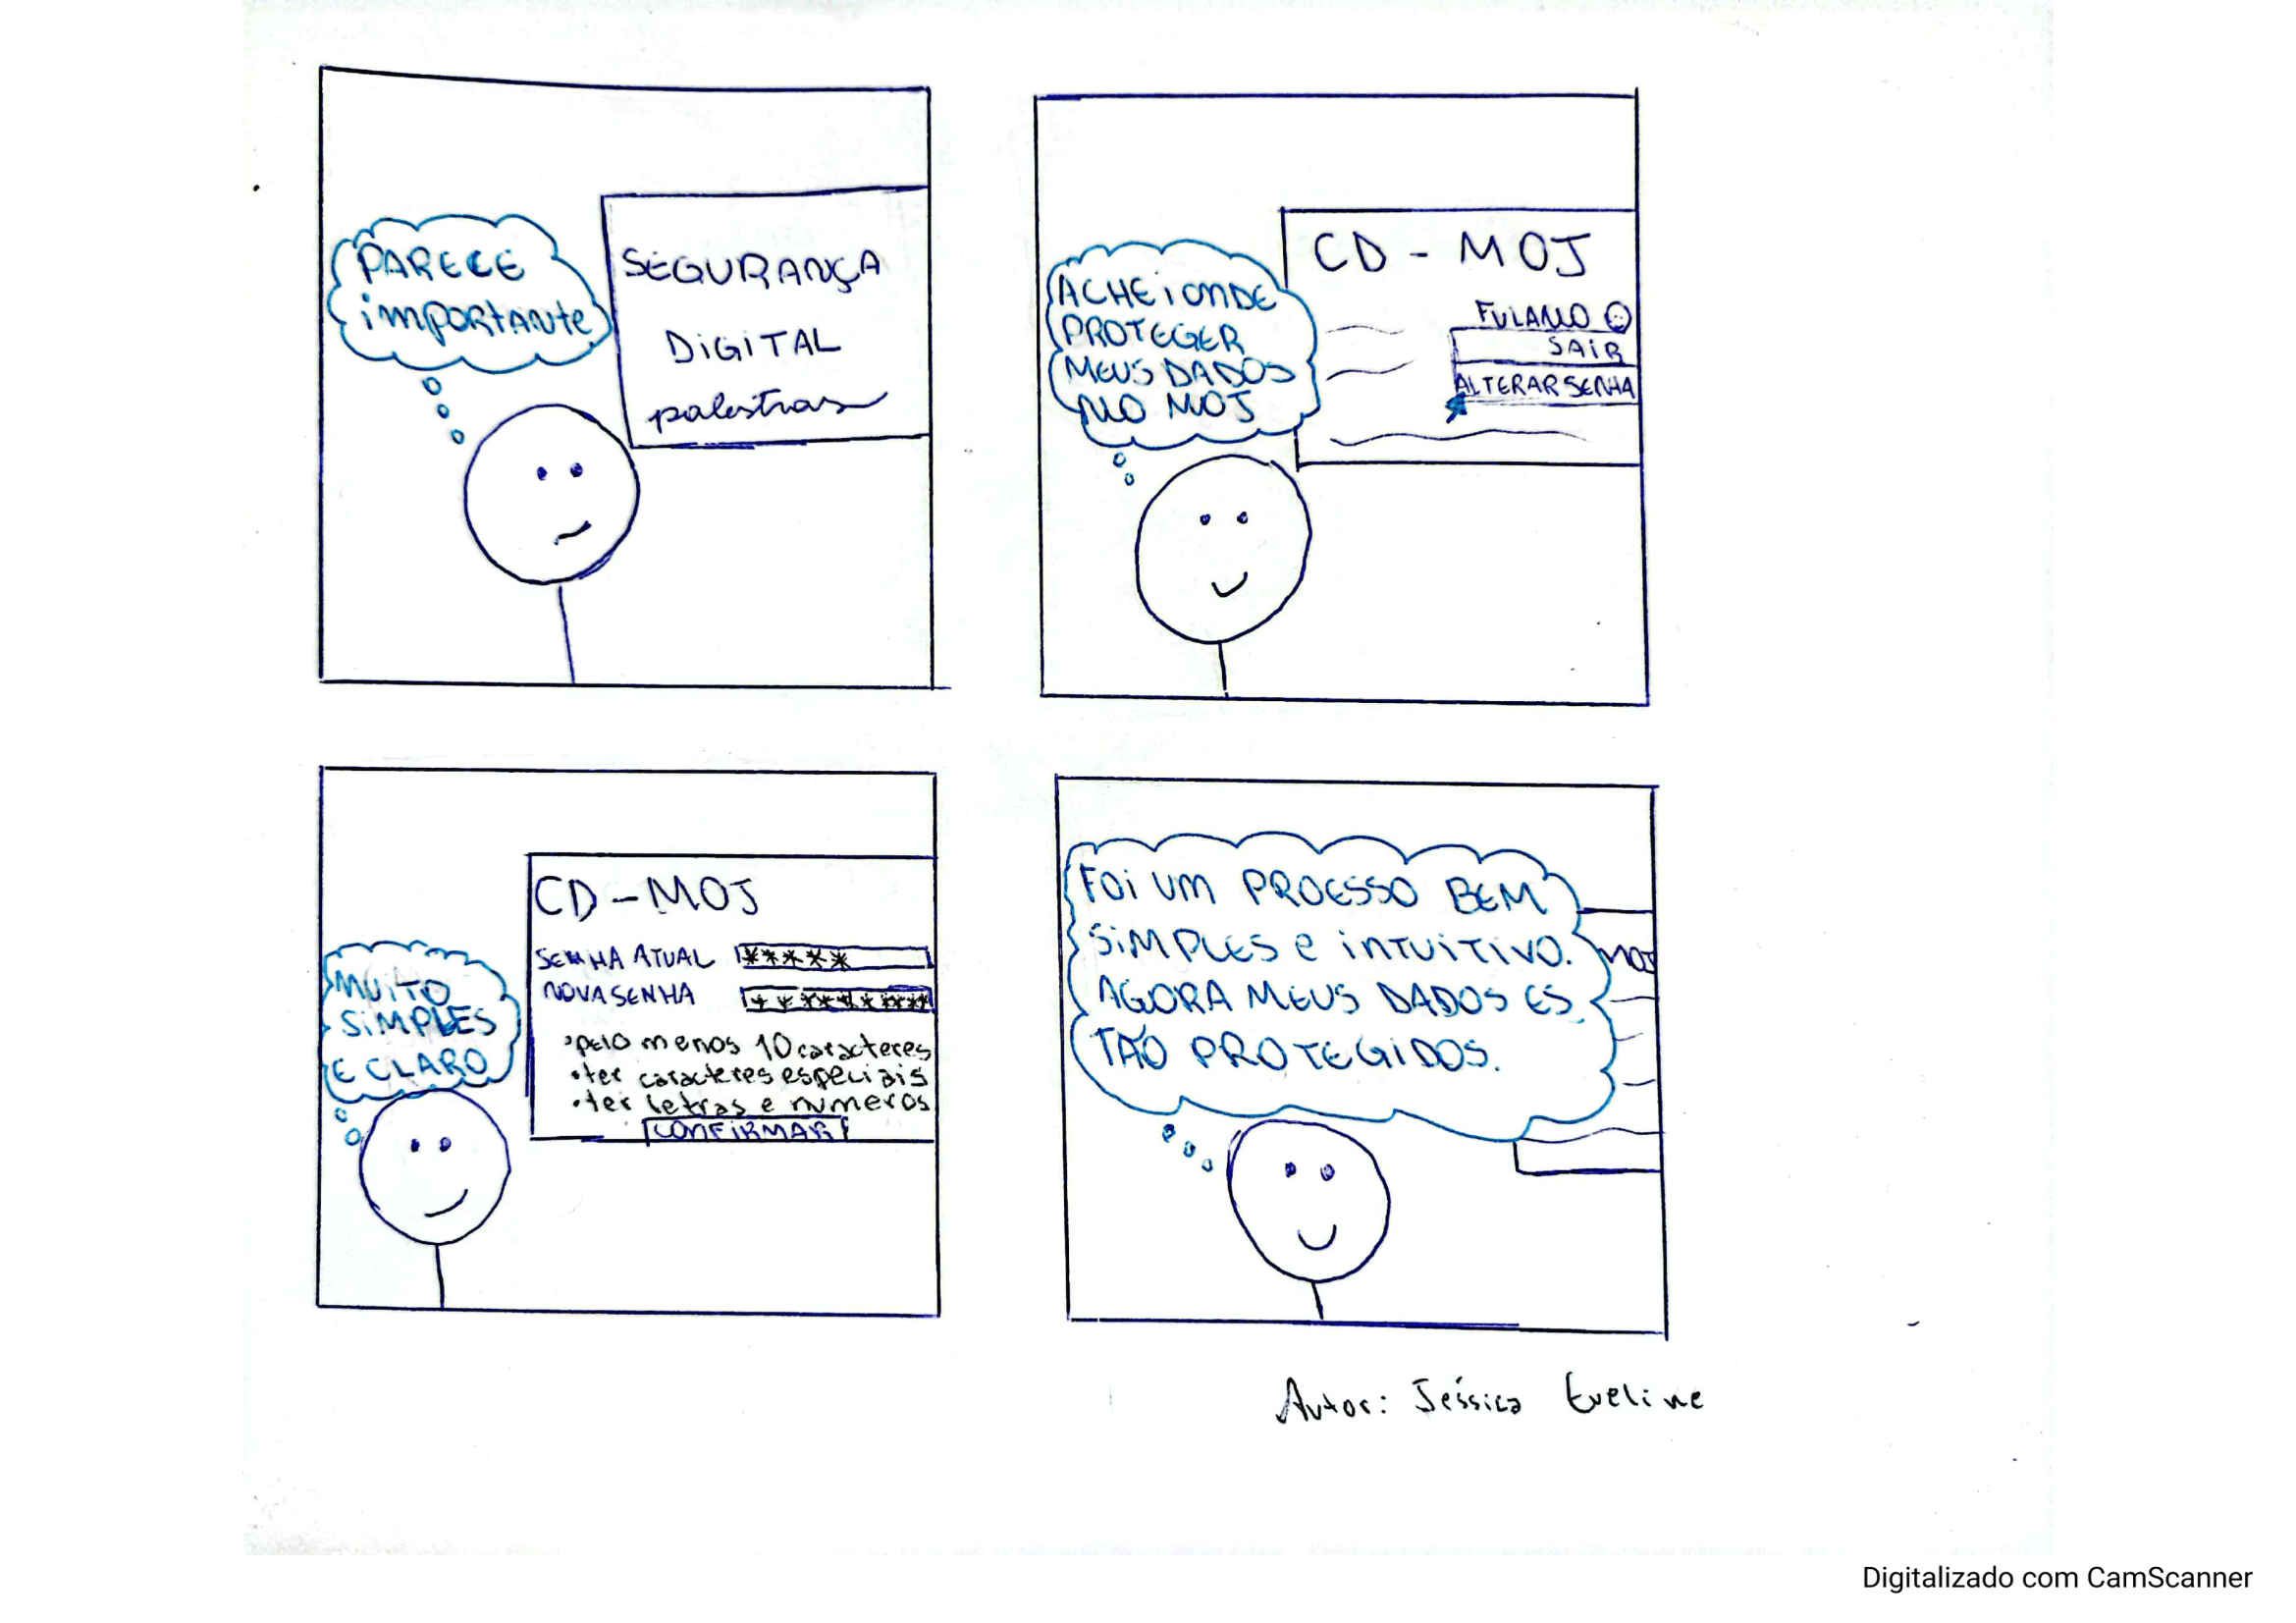 PARECE
importante
SEGURANÇA
DIGITAL
palestras
CD - MOJ
ACHEI ONDE
PROTEGER
MEUS DADOS
NO MOJ
FULANO
SAIR
ALTERAR SENHA
CD - MOJ
SENHA ATUAL *****
NOVA SENHA **********
• pelo menos 10 caracteres
• ter caracteres especiais
• ter letras e numeros
CONFIRMAR
MUITO
SIMPLES
E CLARO
FOI UM PROESSO BEM
SIMPLES e INTUITIVO.
AGORA MEUS DADOS ES
TÃO PROTEGIDOS.
MOJ
Autor: Jéssica Eveline
Digitalizado com CamScanner